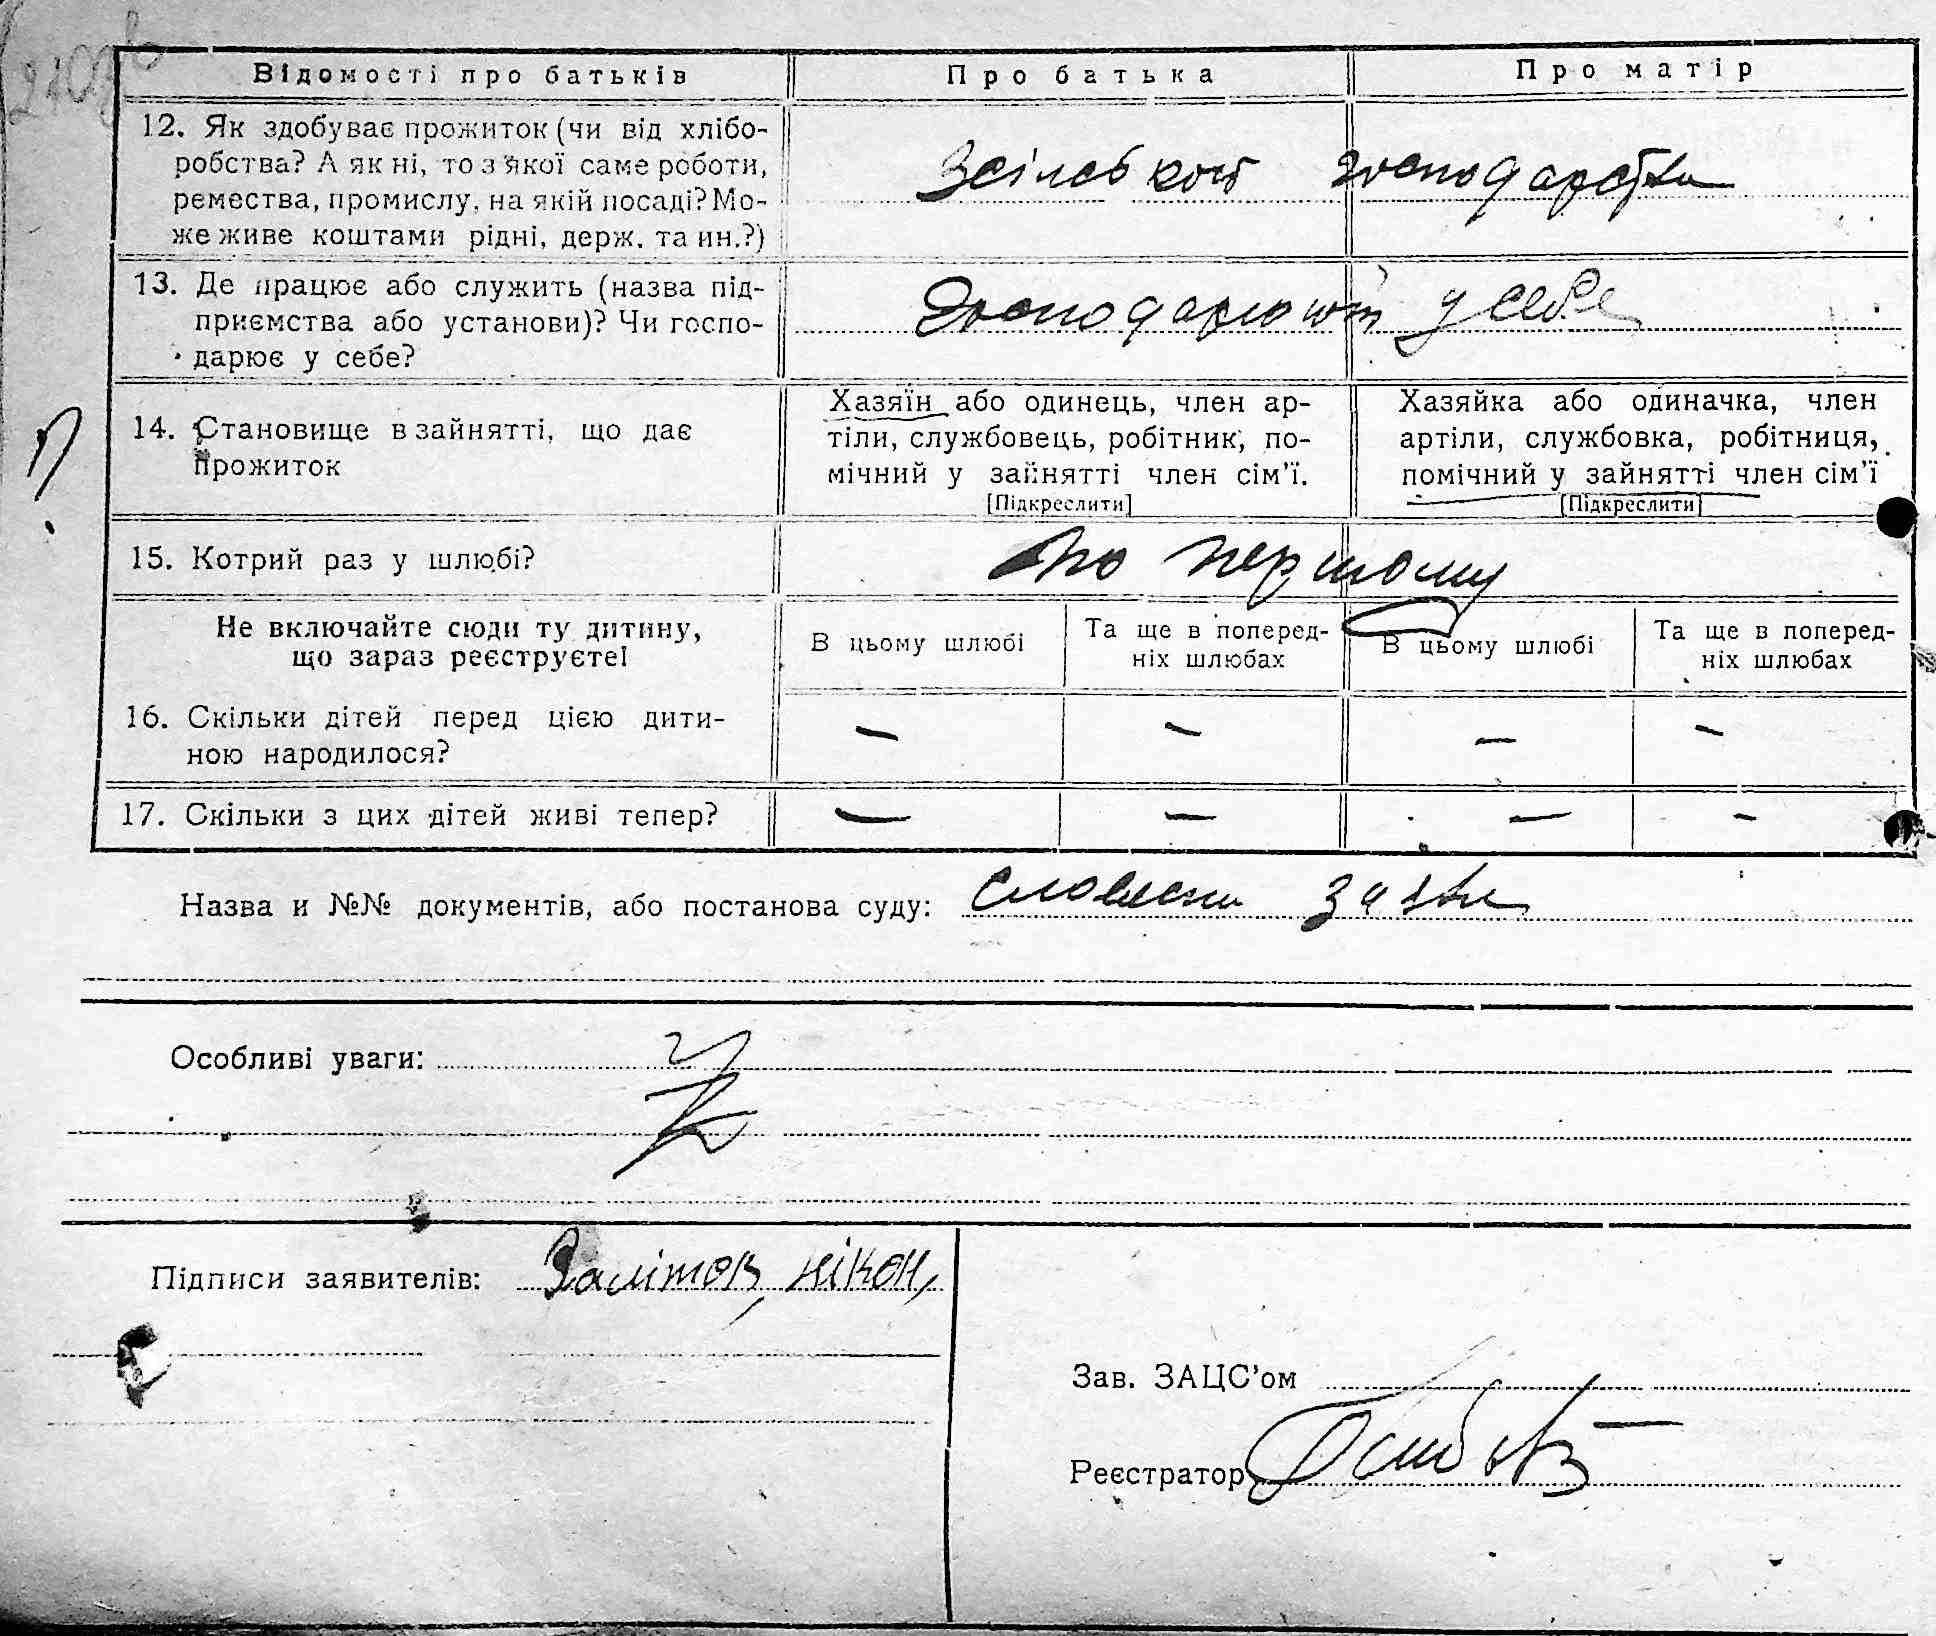 Відомості про батьків
Про батька
Про матір
12. Як здобуває прожиток (чи від хлібо-
робства? А як ні, то з якої саме роботи,
ремества, промислу, на якій посаді? Мо-
же живе коштами рідні, держ. та ин.?)
Зсільского господарства
13. Де працює або служить (назва під-
приємства або установи)? Чи госпо-
дарює у себе?
Господарюют у себе
14. Становище в зайнятті, що дає
прожиток
Хазяїн або одинець, член ар-
тіли, службовець, робітник, по-
мічний у зайнятті член сім'ї.
[Підкреслити]
Хазяйка або одиначка, член
артіли, службовка, робітниця,
помічний у зайнятті член сім'ї
[Підкреслити]
?
15. Котрий раз у шлюбі?
по першому
Не включайте сюди ту дитину,
що зараз реєструєте!
В цьому шлюбі
Та ще в поперед-
ніх шлюбах
В цьому шлюбі
Та ще в поперед-
ніх шлюбах
16. Скільки дітей перед цією дити-
ною народилося?
— — — —
17. Скільки з цих дітей живі тепер?
— — — —
Назва и №№ документів, або постанова суду: Словесна заява
Особливі уваги:
Підписи заявителів: Залітов, нікон,
Зав. ЗАЦС'ом
Реєстратор